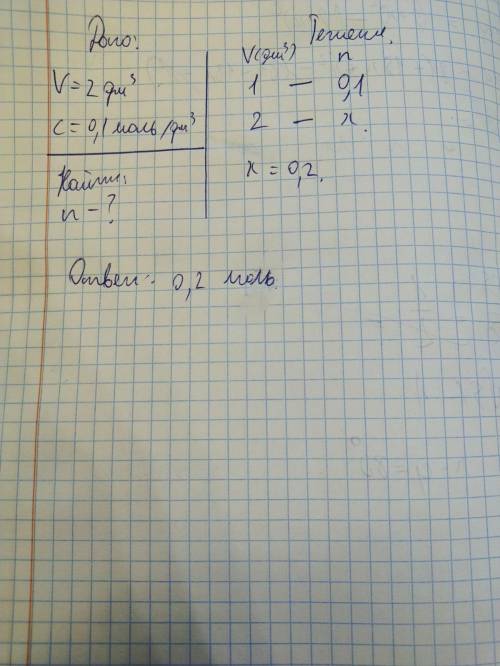 Дано:
V = 2 дм³
c = 0,1 моль/дм³
Найти:
n - ?
Решение.
V(дм³) n
1 — 0,1
2 — x.
x = 0,2.
Ответ: 0,2 моль.